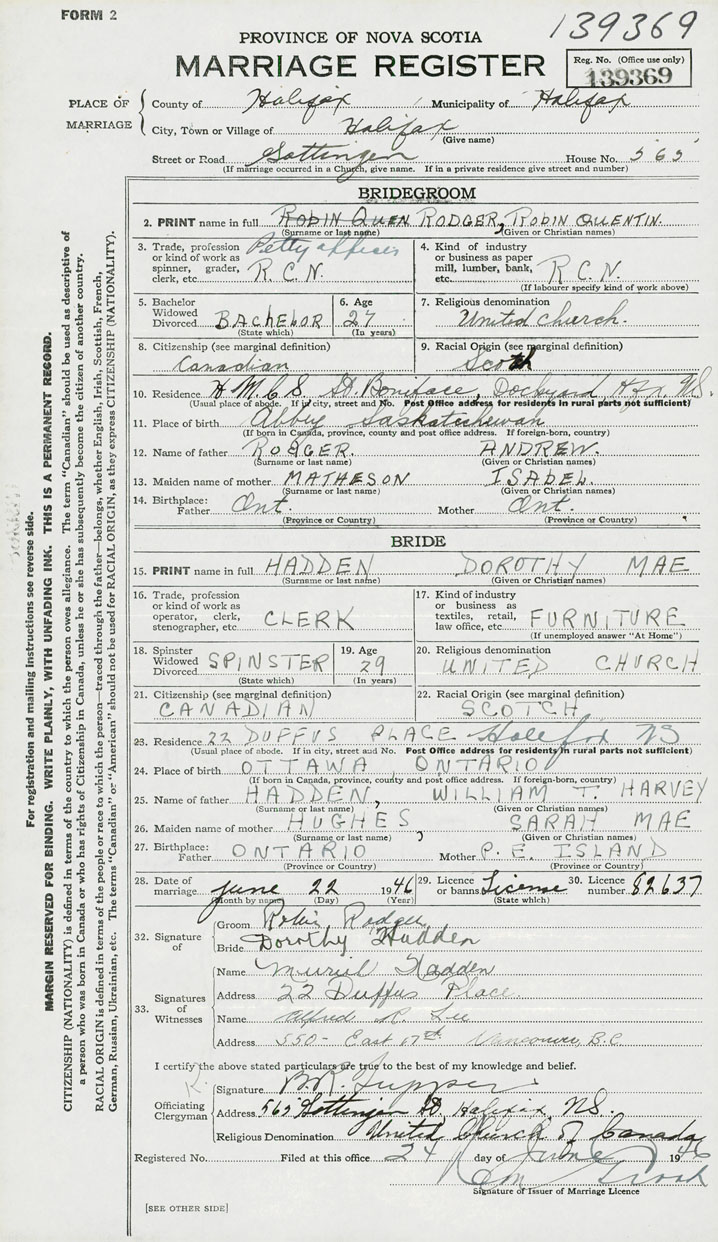 FORM 2
139369
PROVINCE OF NOVA SCOTIA
MARRIAGE REGISTER
Reg. No. (Office use only)
139369
PLACE OF MARRIAGE
County of Halifax Municipality of Halifax
City, Town or Village of Halifax
(Give name)
Street or Road Gottingen House No. 565
(If marriage occurred in a Church, give name. If in a private residence give street and number)
BRIDEGROOM
2. PRINT name in full ROBIN QUEN RODGER, ROBIN QUENTIN
(Surname or last name) (Given or Christian names)
3. Trade, profession or kind of work as spinner, grader, clerk, etc. Petty officer R.C.N.
4. Kind of industry or business as paper mill, lumber, bank, etc. R C N.
(If labourer specify kind of work above)
5. Bachelor Widowed Divorced BACHELOR
(State which)
6. Age 27
(In years)
7. Religious denomination United Church.
8. Citizenship (see marginal definition) Canadian
9. Racial Origin (see marginal definition) Scotch
10. Residence H M.C.S. St Boniface, Dockyard Hfx. N.S.
(Usual place of abode. If in city, street and No. Post Office address for residents in rural parts not sufficient)
11. Place of birth Abbey Saskatchewan
(If born in Canada, province, county and post office address. If foreign-born, country)
12. Name of father RODGER. ANDREW.
(Surname or last name) (Given or Christian names)
13. Maiden name of mother MATHESON ISABEL.
(Surname or last name) (Given or Christian names)
14. Birthplace: Father Ont. Mother Ont.
(Province or Country) (Province or Country)
BRIDE
15. PRINT name in full HADDEN DOROTHY MAE
(Surname or last name) (Given or Christian names)
16. Trade, profession or kind of work as operator, clerk, stenographer, etc. CLERK
17. Kind of industry or business as textiles, retail, law office, etc. FURNITURE
(If unemployed answer "At Home")
18. Spinster Widowed Divorced SPINSTER
(State which)
19. Age 29
(In years)
20. Religious denomination UNITED CHURCH
21. Citizenship (see marginal definition) CANADIAN
22. Racial Origin (see marginal definition) SCOTCH
23. Residence 22 DUFFUS PLACE Halifax NS
(Usual place of abode. If in city, street and No. Post Office address for residents in rural parts not sufficient)
24. Place of birth OTTAWA, ONTARIO
(If born in Canada, province, county and post office address. If foreign-born, country)
25. Name of father HADDEN, WILLIAM T. HARVEY
(Surname or last name) (Given or Christian names)
26. Maiden name of mother HUGHES, SARAH MAE
(Surname or last name) (Given or Christian names)
27. Birthplace: Father ONTARIO Mother P. E. ISLAND
(Province or Country) (Province or Country)
28. Date of marriage June 22 1946
(Month by name) (Day) (Year)
29. Licence or banns License
(State which)
30. Licence number 82637
32. Signature of
Groom Robin Rodger
Bride Dorothy Hadden
33. Signatures of Witnesses
Name Muriel Hadden
Address 22 Duffus Place.
Name Alfred R. Lee
Address 550- East 17th Vancouver, B.C.
I certify the above stated particulars are true to the best of my knowledge and belief.
Officiating Clergyman
Signature B.R. Tupper
Address 565 Gottingen St. Halifax, N.S.
Religious Denomination United Church of Canada
Registered No. Filed at this office 24 day of June 1946
Signature of Issuer of Marriage Licence
[SEE OTHER SIDE]
For registration and mailing instructions see reverse side.
MARGIN RESERVED FOR BINDING. WRITE PLAINLY, WITH UNFADING INK. THIS IS A PERMANENT RECORD.
CITIZENSHIP (NATIONALITY) is defined in terms of the country to which the person owes allegiance. The term "Canadian" should be used as descriptive of
a person who was born in Canada or who has rights of Citizenship in Canada, unless he or she has subsequently become the citizen of another country.
RACIAL ORIGIN is defined in terms of the people or race to which the person—traced through the father—belongs, whether English, Irish, Scottish, French,
German, Russian, Ukrainian, etc. The terms "Canadian" or "American" should not be used for RACIAL ORIGIN, as they express CITIZENSHIP (NATIONALITY).